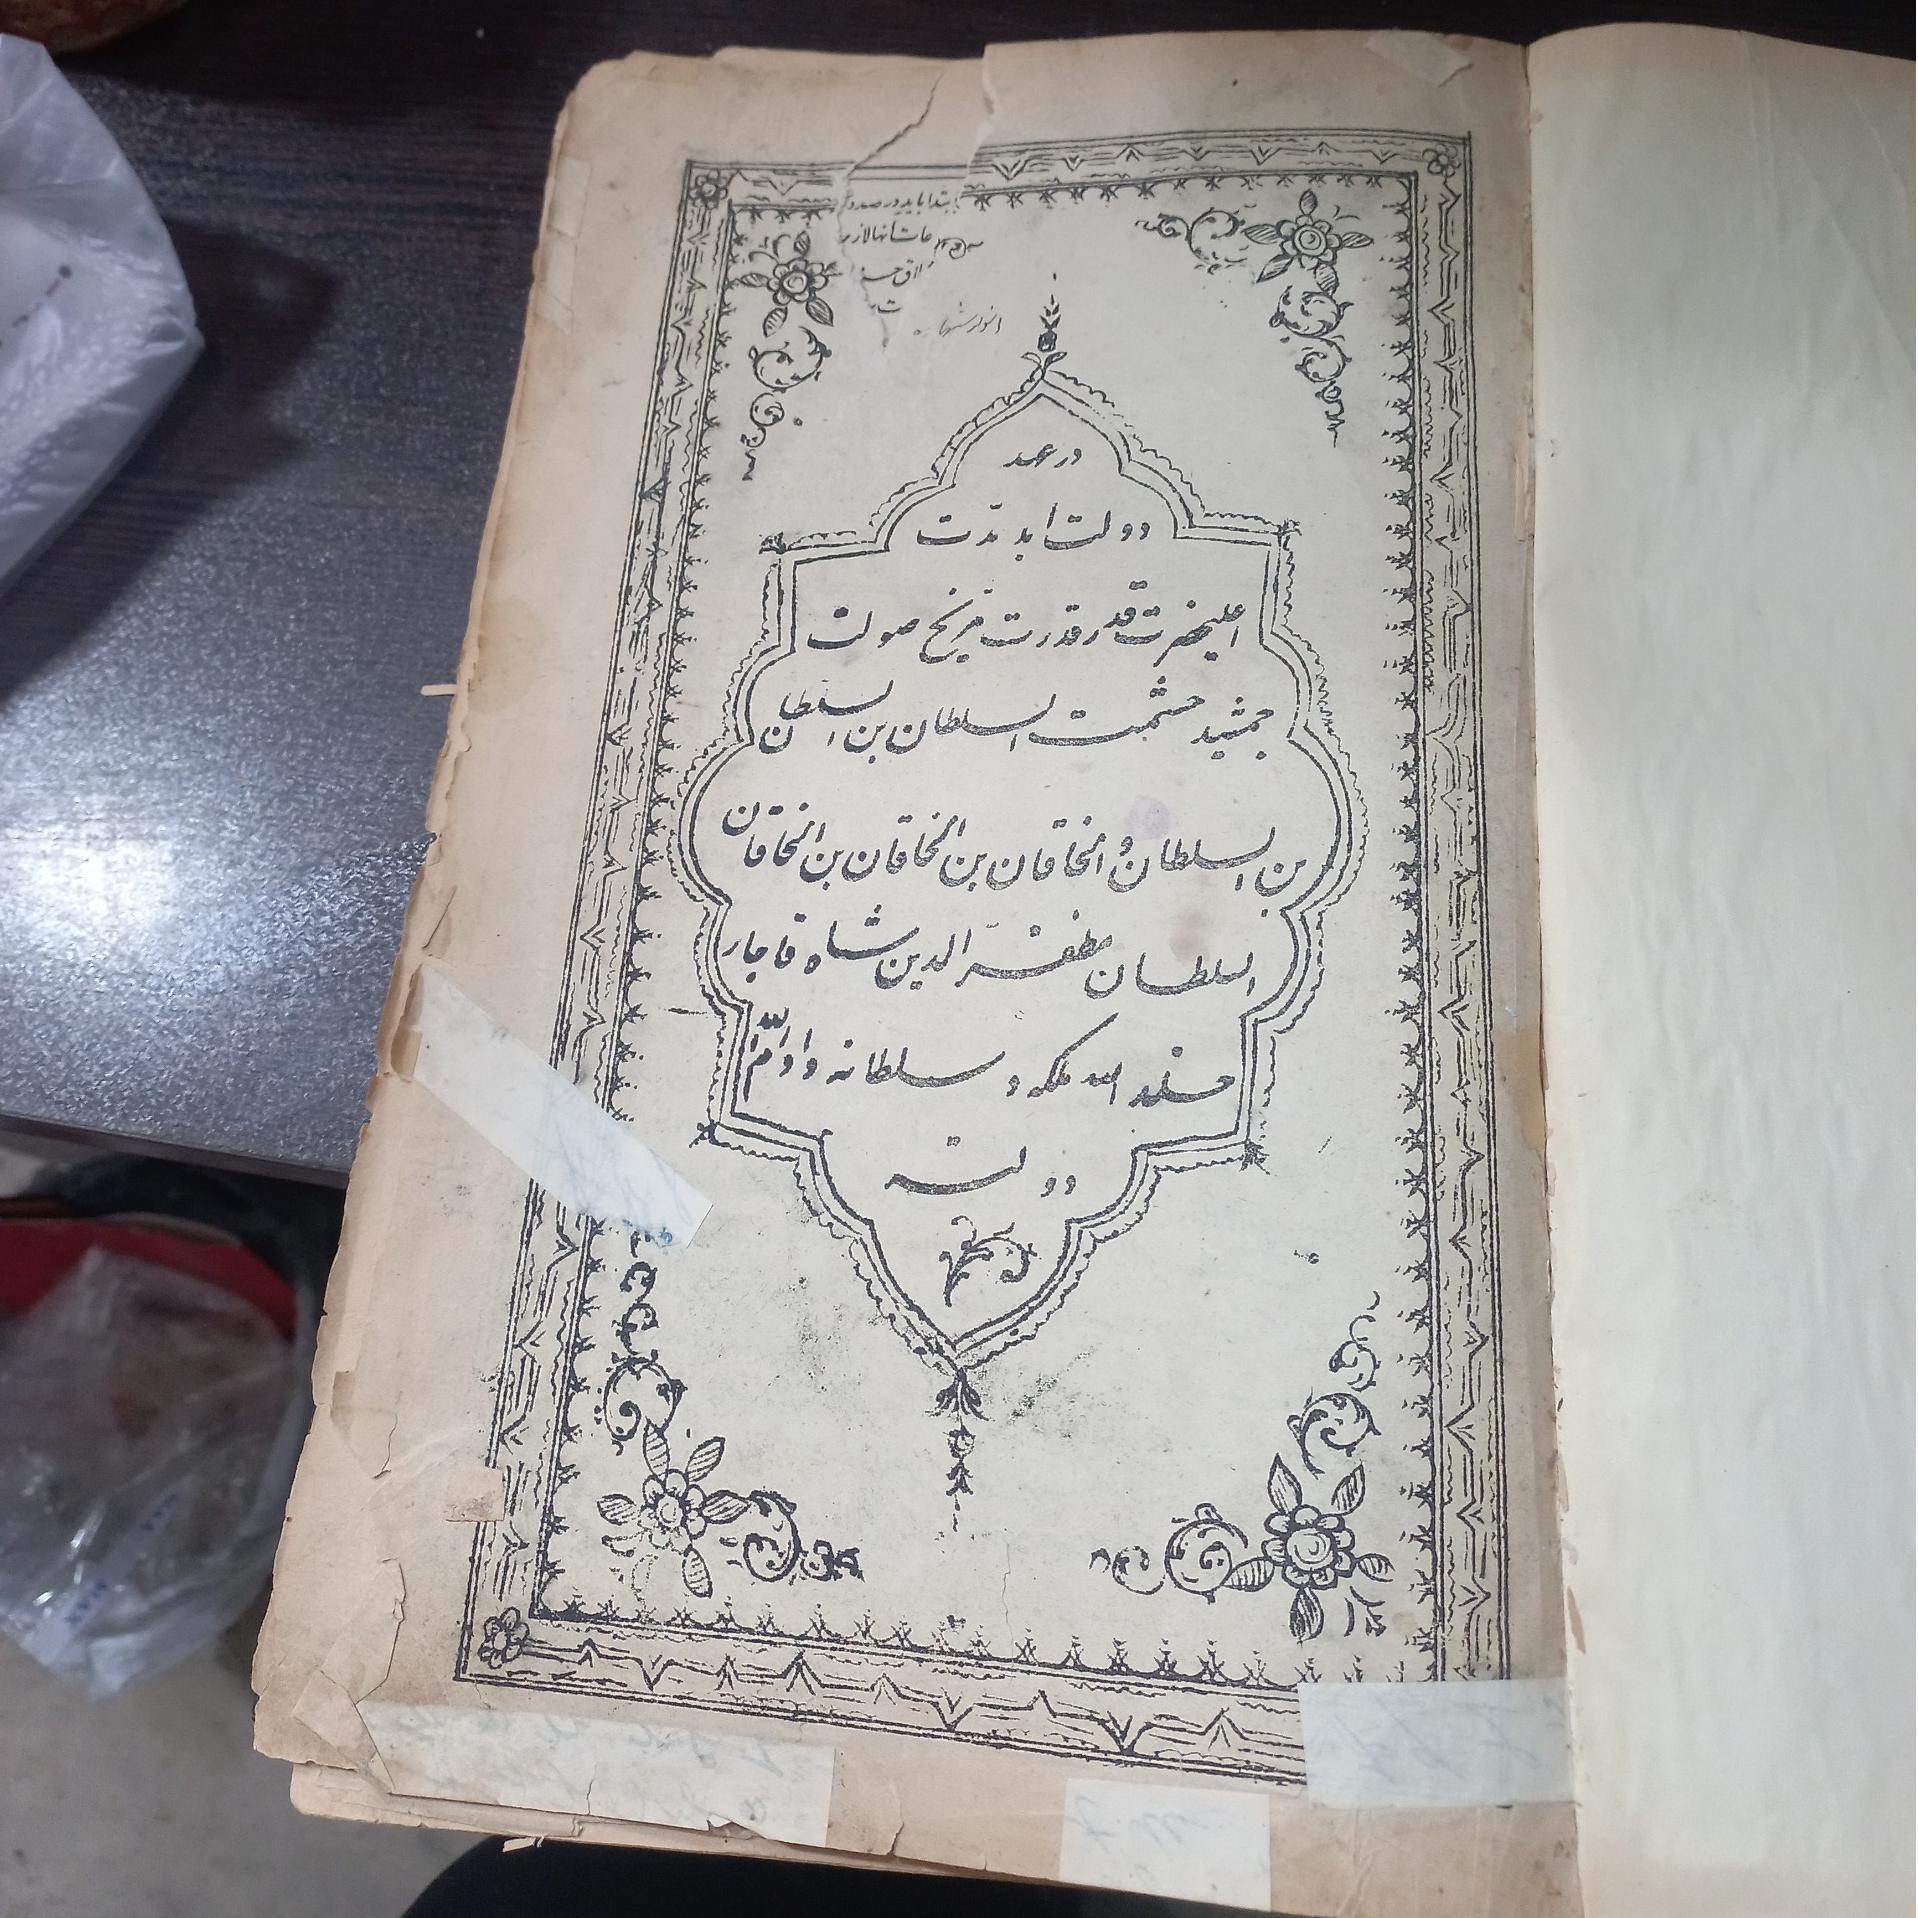 ابتدا باید در صدد
در عهد
دولت ابد مدت
اعلیحضرت قدر قدرت مریخ صولت
جمشید حشمت السلطان بن السلطان
بن السلطان و الخاقان بن الخاقان بن الخاقان
السلطان مظفر الدین شاه قاجار
خلد الله ملکه و سلطانه و ادام الله
دولته